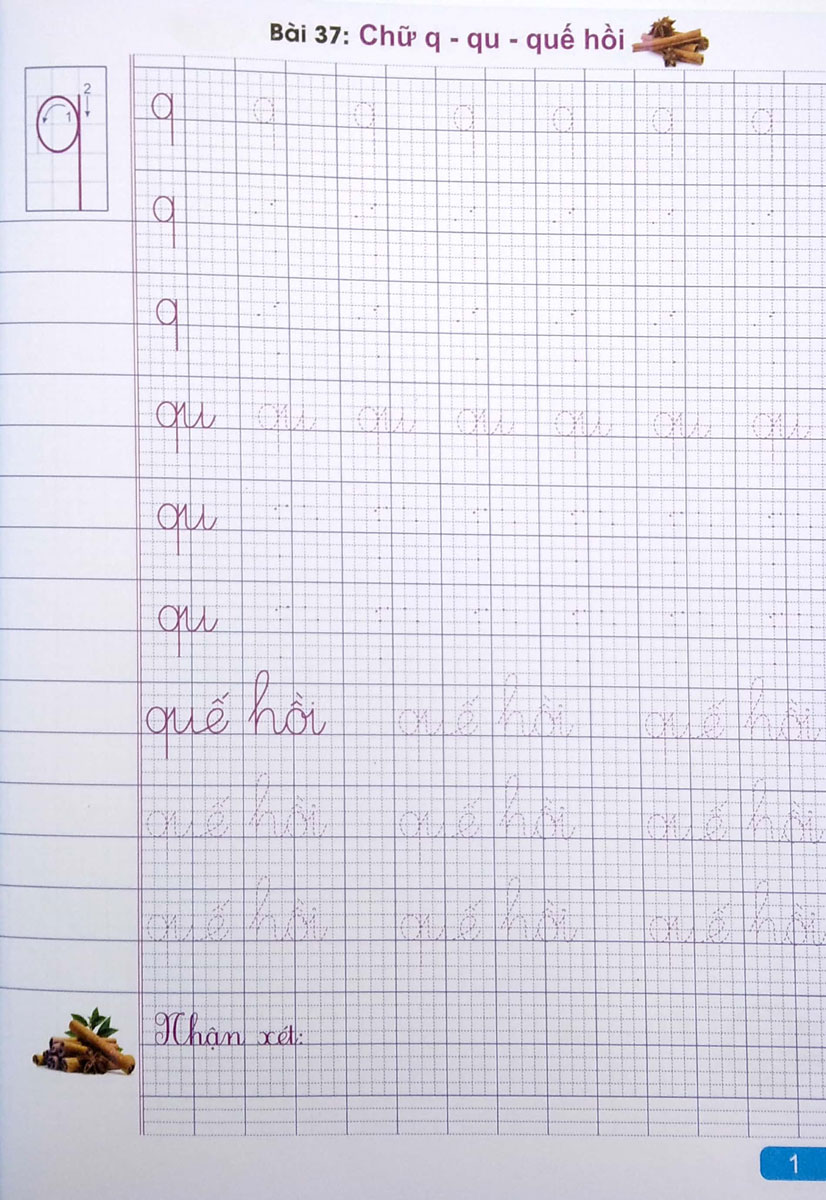 Bài 37: Chữ q - qu - quế hồi
1 2
q q q q q q q
q
q
qu qu qu qu qu qu qu
qu
qu
quế hồi quế hồi quế hồi
quế hồi quế hồi quế hồi
quế hồi quế hồi quế hồi
Nhận xét:
1